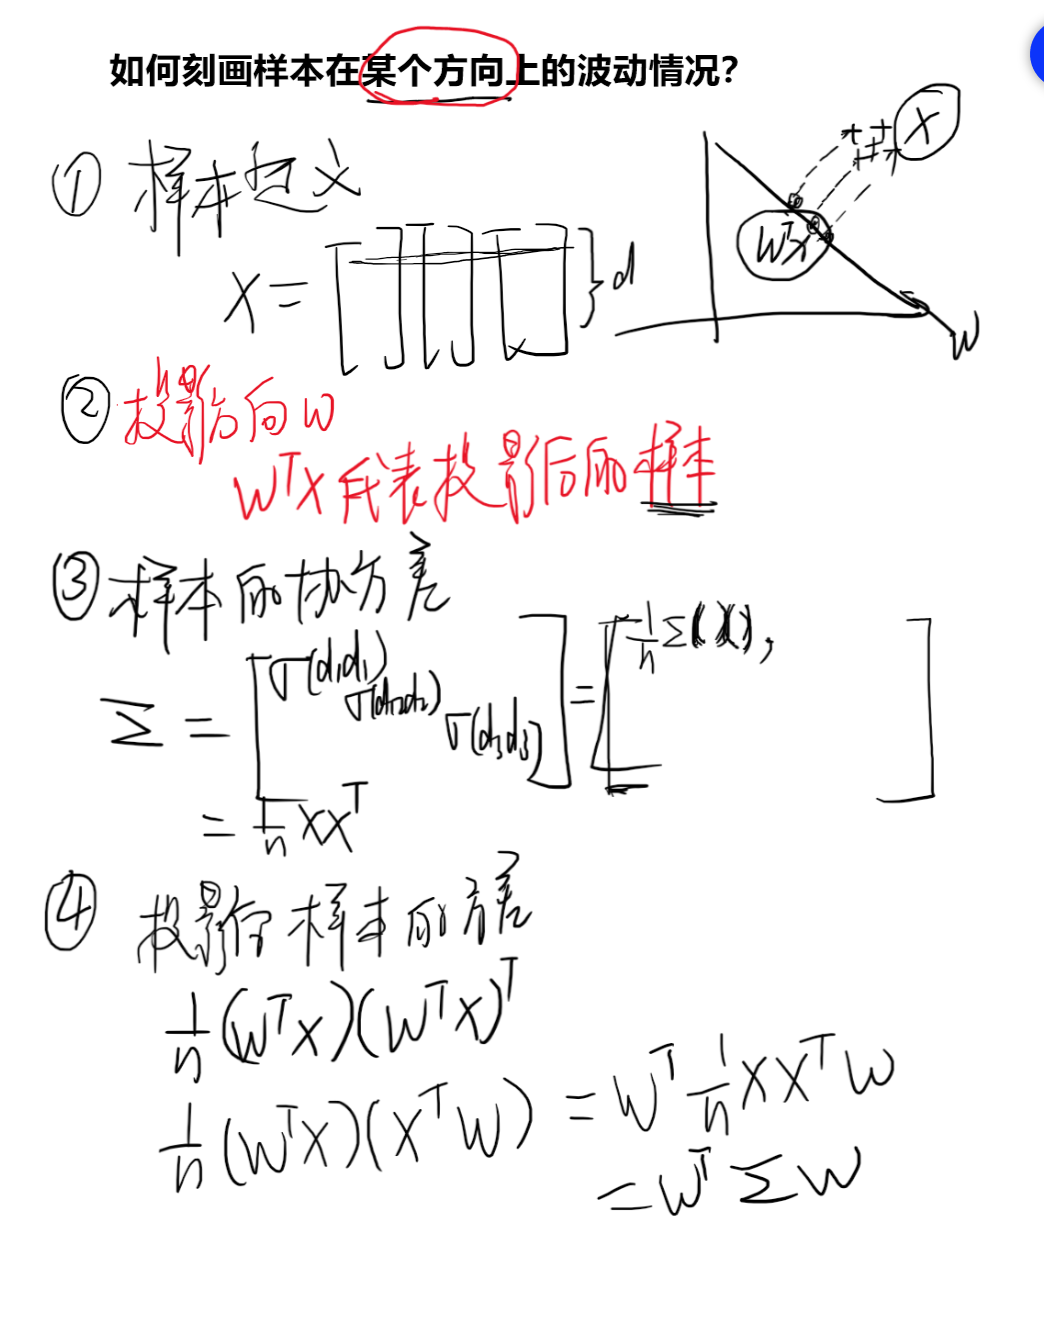 如何刻画样本在某个方向上的波动情况?
① 样本定义
X
WᵀX
W
X = [ ] [ ] [ ] } d
② 投影方向 W
WᵀX 代表投影后的样本
③ 样本的协方差
Σ = [ σ(d₁d₁) σ(d₂d₂) σ(d₃d₃) ] = [ 1/n Σ( ), ]
= 1/n XXᵀ
④ 投影后样本的方差
1/n (WᵀX)(WᵀX)ᵀ
1/n (WᵀX)(XᵀW) = Wᵀ 1/n XXᵀ W
= WᵀΣW